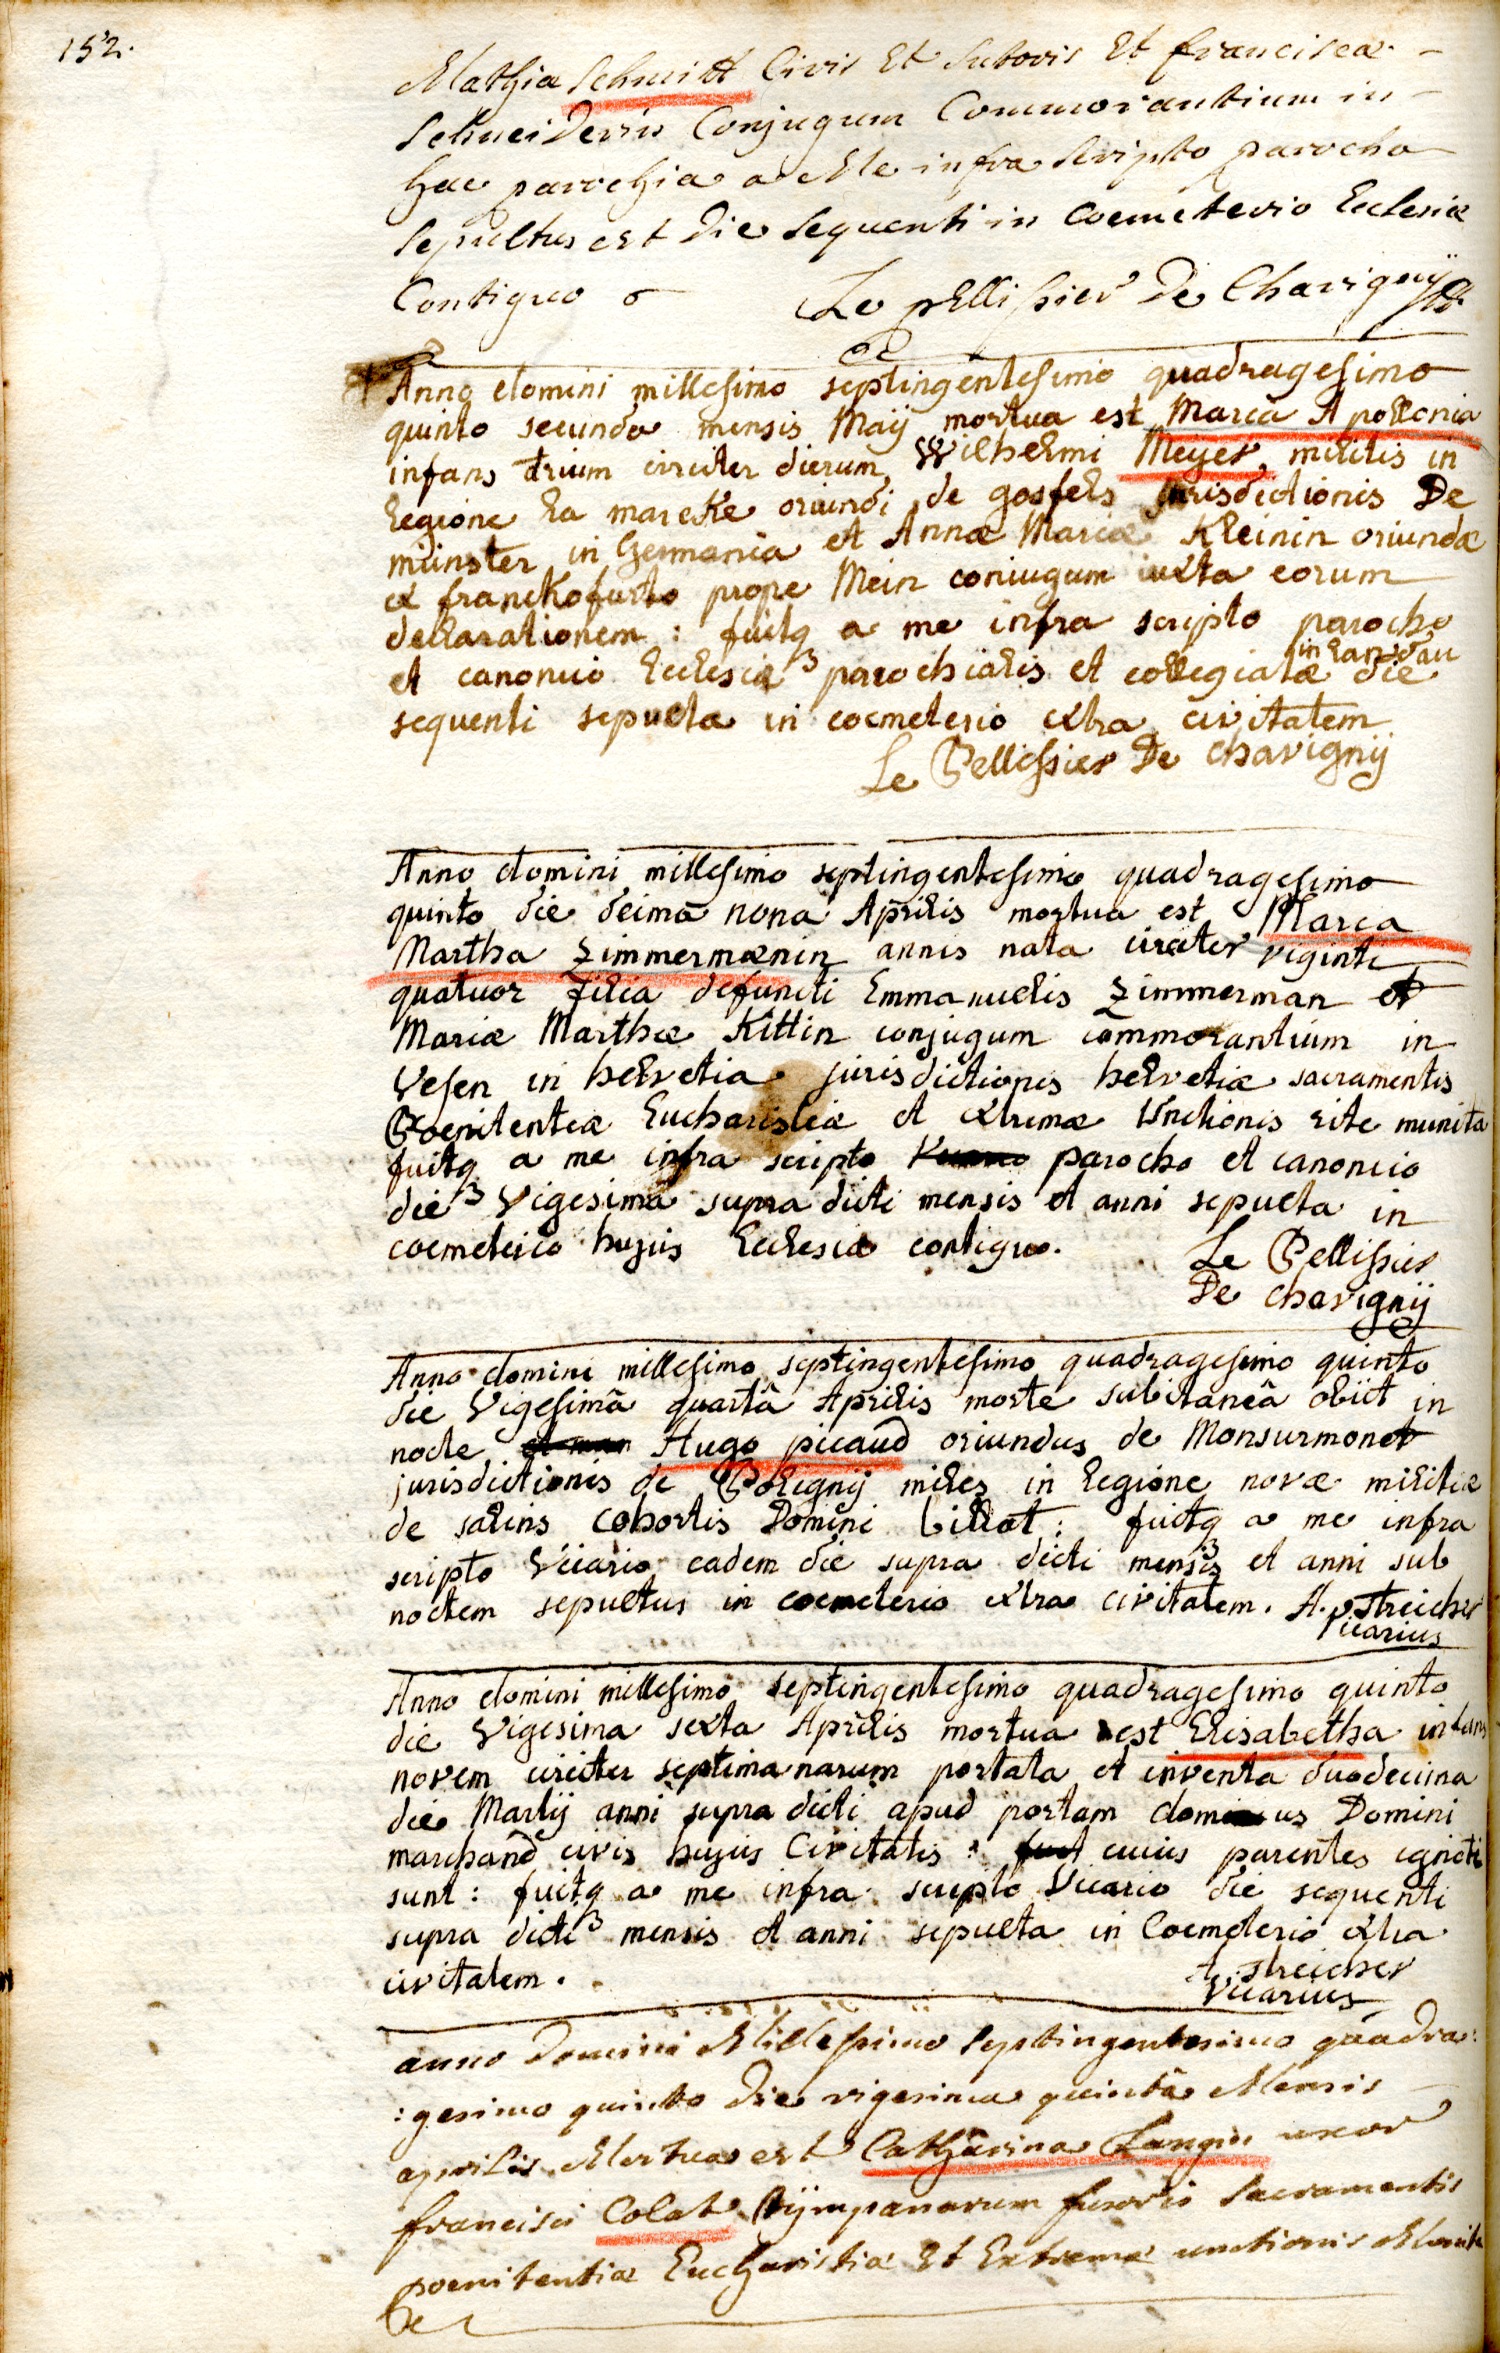 152.
Mathia Schmitt Civis Et Sutoris Et francisca
Schneiderin Conjugum Commorantium in
hac parochia a Me infra scripto parocho
Sepultus est die sequenti in Coemeterio Ecclesiæ
Contiguo
Le pellissier De Chavignÿ
Anno domini millesimo septingentesimo quadragesimo
quinto secunda mensis Maij mortua est Maria Apollonia
infans trium circiter dierum Wilhelmi Meyer, militis in
legione La marcke oriundi de gosfels jurisdictionis De
münster in Germania et Annæ Mariæ Kleinin oriundæ
ex franckofurto prope Mein coniugum iuxta eorum
declarationem : fuitq a me infra scripto parocho
et canonico Ecclesiæ parochialis et collegiatæ in Landau die
sequenti sepulta in coemeterio extra civitatem
Le Pellissier De Chavignij
Anno domini millesimo septingentesimo quadragesimo
quinto die decima nona Aprilis mortua est Maria
Martha Zimmermænin annis nata circiter viginti
quatuor filia defuncti Emmanuelis Zimmerman et
Mariæ Marthæ Kittin conjugum commorantium in
Vesen in helvetia jurisdictionis helvetiæ sacramentis
Poenitentiæ Eucharistiæ et extremæ Unctionis rite munita
fuitq a me infra scripto parocho et canonico
die Vigesimâ supra dicti mensis et anni sepulta in
coemeterio hujus Ecclesiæ contiguo.
Le Pellissier
De Chavignij
Anno domini millesimo septingentesimo quadragesimo quinto
die Vigesimâ quartâ Aprilis morte subitaneâ obiit in
nocte Hugo picaud oriundus de Monsurmonet
jurisdictionis de Polignij miles in legione novæ militiæ
de salins Cohortis Domini billot : fuitq a me infra
scripto Vicario eadem die supra dicti mensis et anni sub
noctem sepultus in coemeterio extra civitatem. A. Streicher
Vicarius
Anno domini millesimo septingentesimo quadragesimo quinto
die Vigesima sexta Aprilis mortua est Elisabetha infans
novem circiter septimanarum portata et inventa duodecima
die Martij anni supra dicti apud portam domus Domini
marchand civis hujus Civitatis : cuius parentes ignoti
sunt : fuitq a me infra scripto Vicario die sequenti
supra dicti mensis et anni sepulta in Coemeterio extra
civitatem.
A. Streicher
Vicarius
anno Domini Millessimo septingentesimo quadra:
:gesimo quinto die vigesima quintâ Mensis
aprilis Mortua est Catharina Langin uxor
francisci Colat Tijmpanorum fusoris Sacramentis
poenitentiæ Eucharistiæ Et Extremæ unctionis Munita